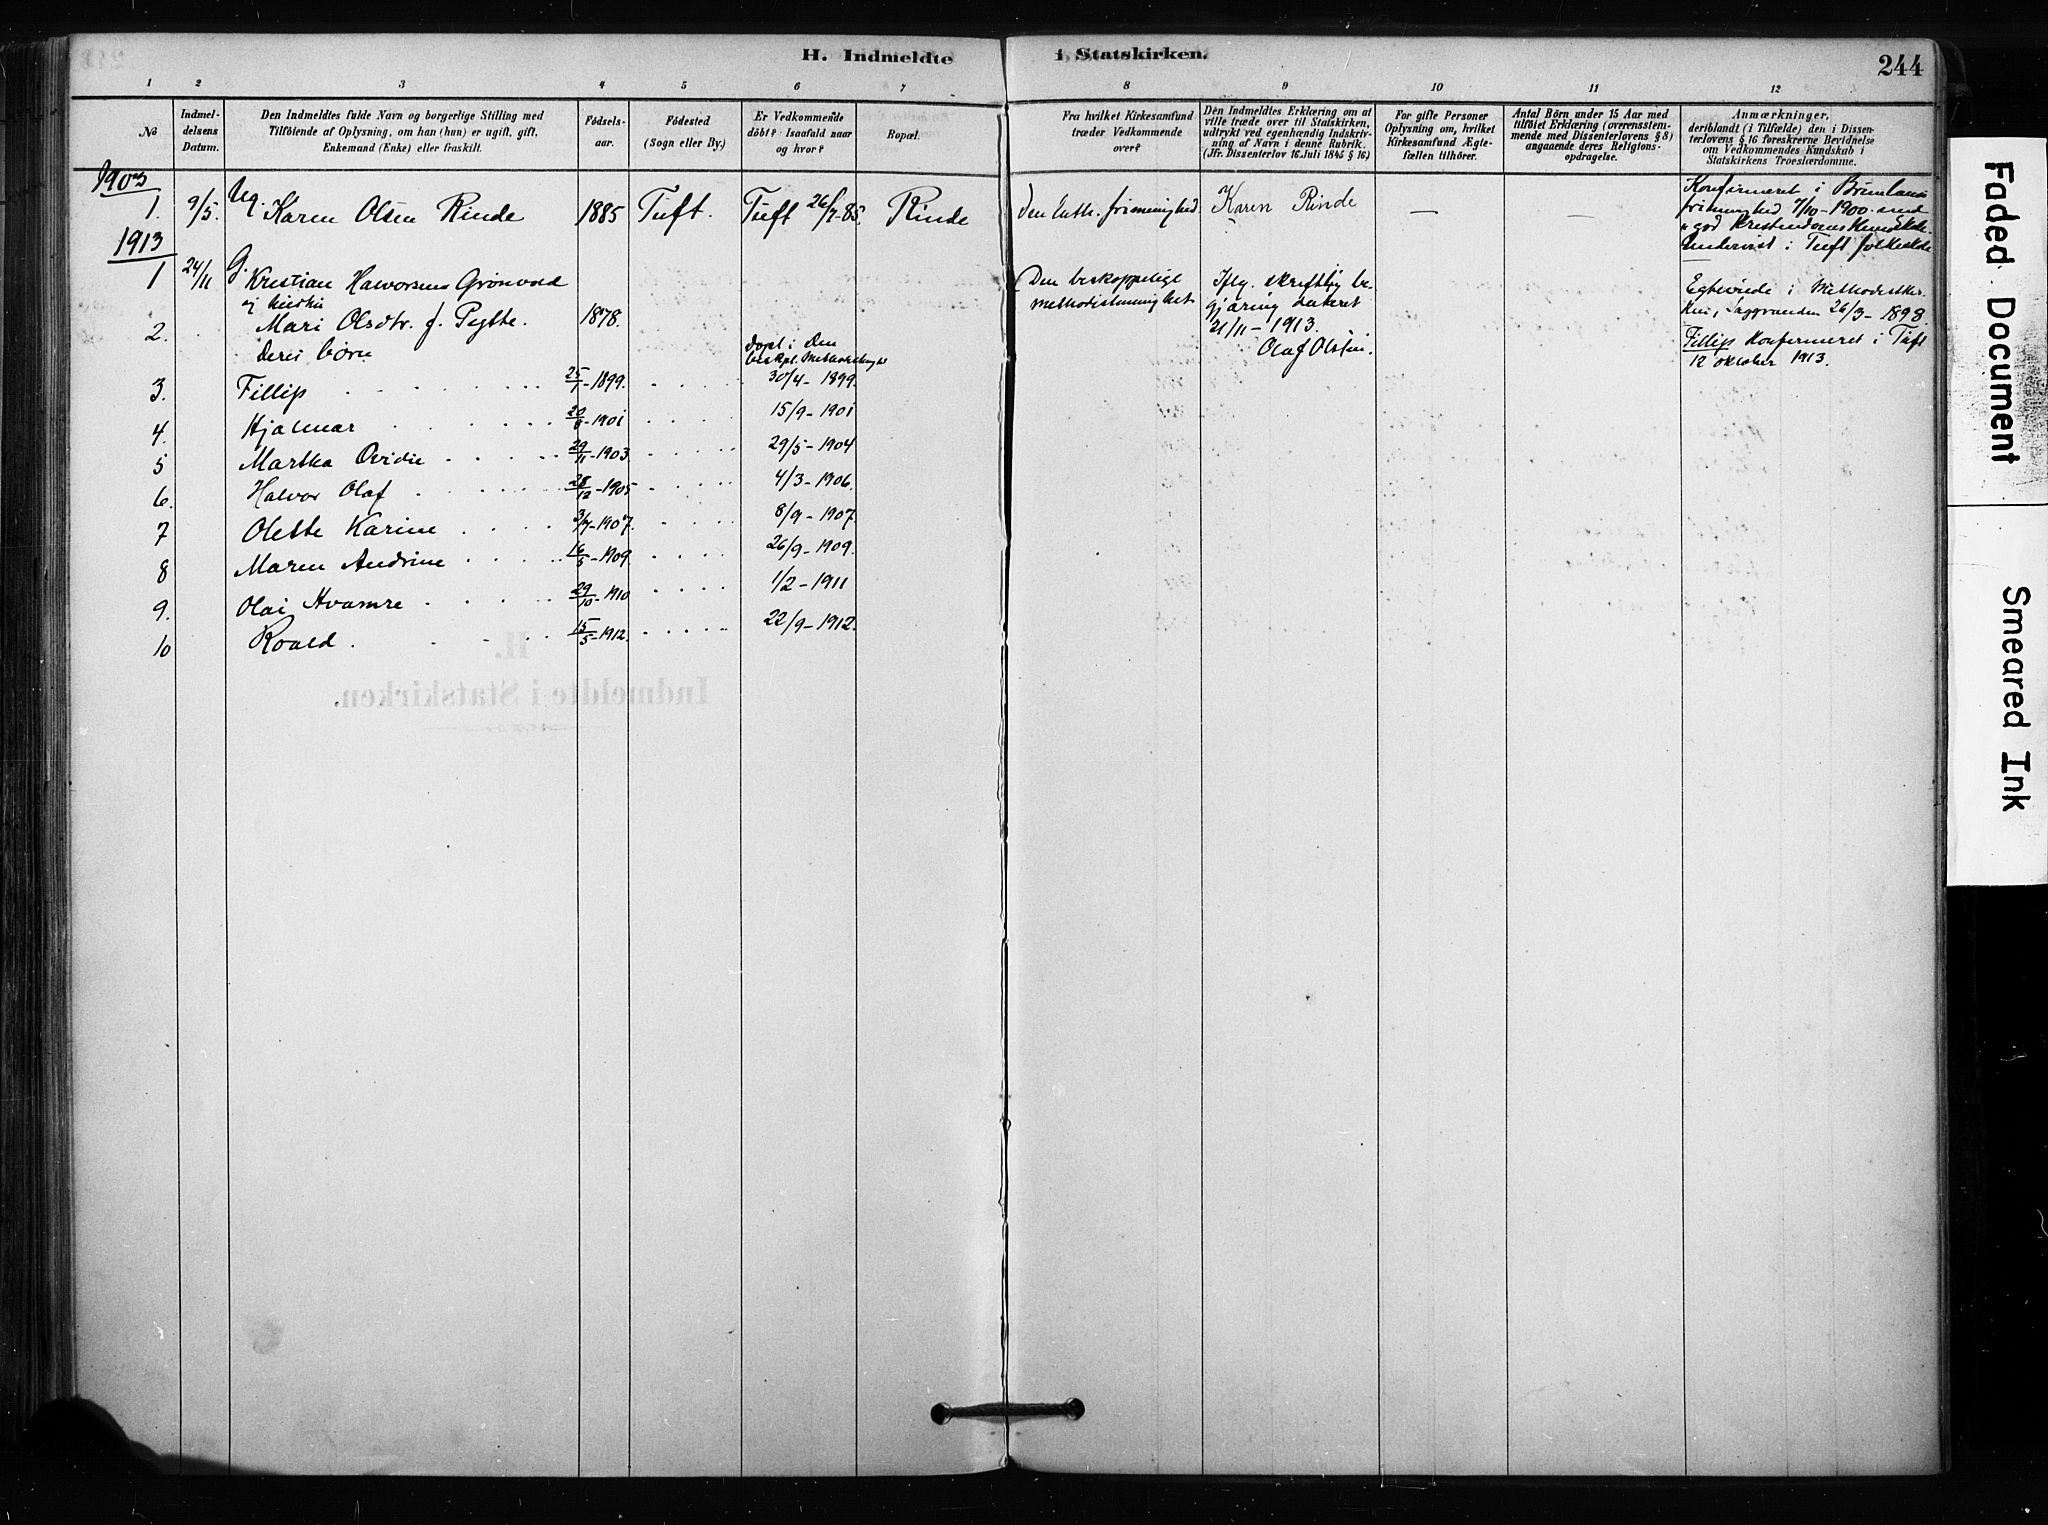 H. Indmeldte i Statskirken.
244
1 2 3 4 5 6 7 8 9 10 11 12
No
Indmel-
delsens
Datum.
Den Indmeldtes fulde Navn og borgerlige Stilling med
Tilföiende af Oplysning, om han (hun) er ugift, gift,
Enkemand (Enke) eller fraskilt.
Födsels-
aar.
Födested
(Sogn eller By.)
Er Vedkommende
döbt? Isaafald naar
og hvor?
Bopæl.
Fra hvilket Kirkesamfund
træder Vedkommende
over?
Den Indmeldtes Erklæring om at
ville træde over til Statskirken,
udtrykt ved egenhændig Indskriv-
ning af Navn i denne Rubrik.
(Jfr. Dissenterlov 16 Juli 1845 § 16)
For gifte Personer
Oplysning om, hvilket
Kirkesamfund Ægte-
fællen tilhörer.
Antal Börn under 15 Aar med
tilföiet Erklæring (overensstem-
mende med Dissenterlovens § 8)
angaaende deres Religions-
opdragelse.
Anmærkninger,
deriblandt (i Tilfælde) den i Dissen-
terlovens § 16 foreskrevne Bevidnelse
om Vedkommendes Kundskab i
Statskirkens Troeslærdomme.
1903
1. 9/5. Ug. Karen Olsen Rinde 1885 Tuft. Tuft 26/7-85. Rinde
Den luth. frimenighed
Karen Rinde
—
—
Konfirmeret i Brunlanes
frimenighed 7/10-1900 med
god Kristendoms
i Tuft
1913
1 24/11 G. Kristian Halvorsen Grönvold
og hustru
2. Mari Olsdtr. f. 1878.
Deres börn
Döpt i Den
Den biskoppelige
methodistmenighet
Iflg. skriftlig be-
gjæring dateret
21/11-1913.
Olaf Olsen.
Egteviede i Methodistkir-
26/3-1898.
Fillip Konfirmeret i Tuft
12 oktober 1913.
3. Fillip 25/1-1899. 30/4-1899.
4. Hjalmar 20/6-1901 15/9-1901
5 Martha Ovidie 29/11-1903 29/5-1904
6. Halvor Olaf 28/12-1905 4/3-1906.
7 Olette Karine 3/7-1907. 8/9-1907.
8 Maren Andrine 16/5-1909. 26/9-1909.
9. Olai Hvamre 29/10-1910 1/2-1911
10 Roald 15/5-1912. 22/9-1912.
H.
Indmeldte i Statskirken.
Faded Document
Smeared Ink